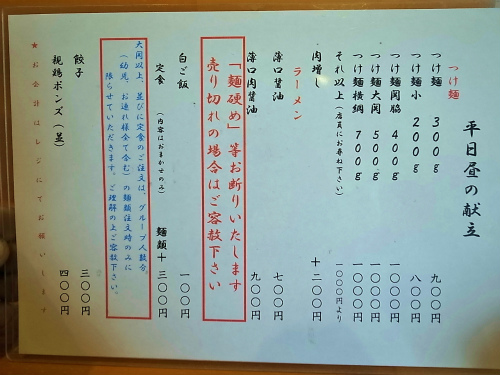 平日昼の献立
つけ麺
つけ麺 300g 九〇〇円
つけ麺小 200g 八〇〇円
つけ麺関脇 400g 一〇〇〇円
つけ麺大関 500g 一〇〇〇円
つけ麺横綱 700g 一〇〇〇円
それ以上(店員にお尋ね下さい) 一〇〇〇円より
肉増し 十二〇〇円
ラーメン
薄口醤油 七〇〇円
薄口肉醤油 九〇〇円
「麺硬め」等お断りいたします
売り切れの場合はご容赦下さい
白ご飯 一〇〇円
定食 (内容はおまかせのみ) 麺類十三〇〇円
大関以上、並びに定食のご注文は、グループ人数分
(幼児、お連れ様全て含む)の麺類注文時のみに
限らせていただきます。ご理解の上ご容赦下さい。
餃子 三〇〇円
親鶏ポンズ(並) 四〇〇円
★お会計はレジにてお願いします